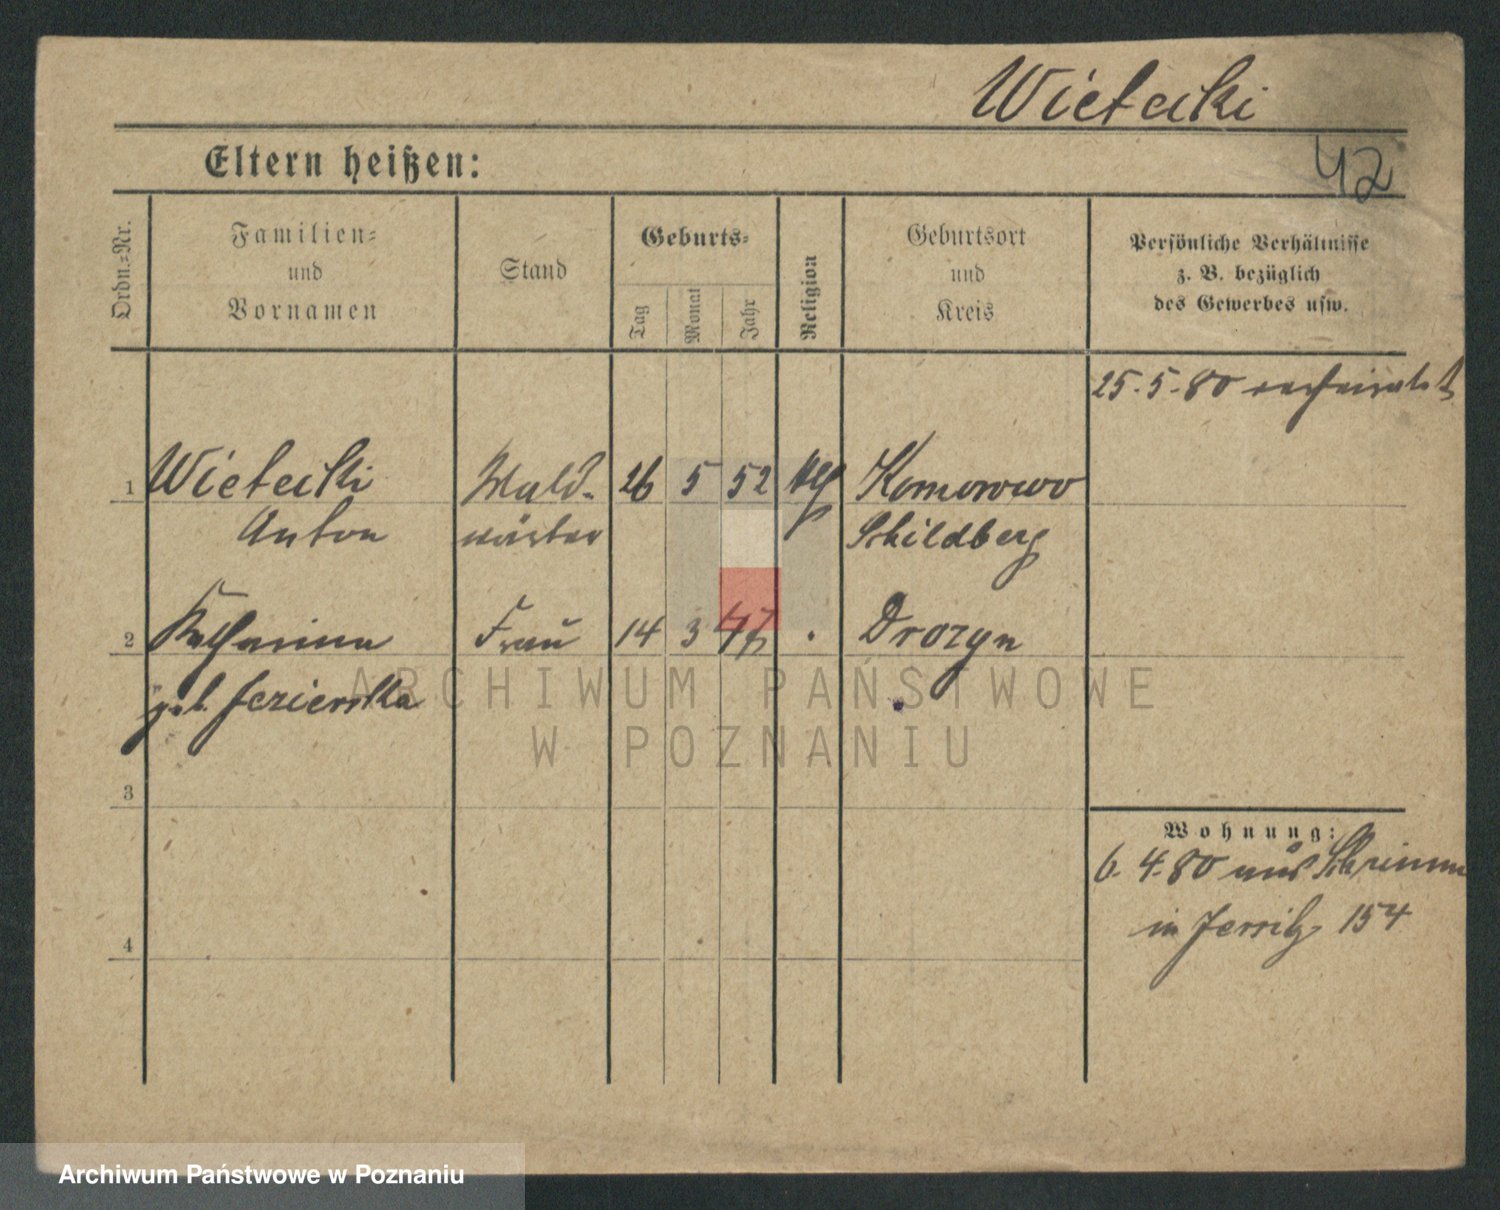 Wietecki
Eltern heißen:
42
Ordn.-Nr.
Familien-
und
Vornamen
Stand
Geburts-
Tag
Monat
Jahr
Religion
Geburtsort
und
Kreis
Persönliche Verhältnisse
z. B. bezüglich
des Gewerbes usw.
25. 5. 80 verheiratet
1 Wietecki Wald- 26 5 52 Komorowo
Anton wärter Schildberg
2 Katharina Frau 14 3 47 Drozyn
geb. Jezierska
ARCHIWUM PAŃSTWOWE
W POZNANIU
3
Wohnung:
6. 4. 80 aus Schrimm
in Jersitz 154
4
Archiwum Państwowe w Poznaniu